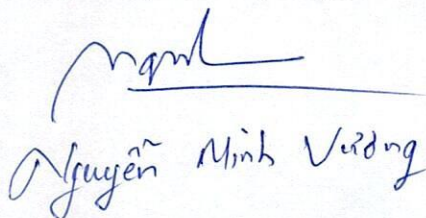 Nguyễn Minh Vương